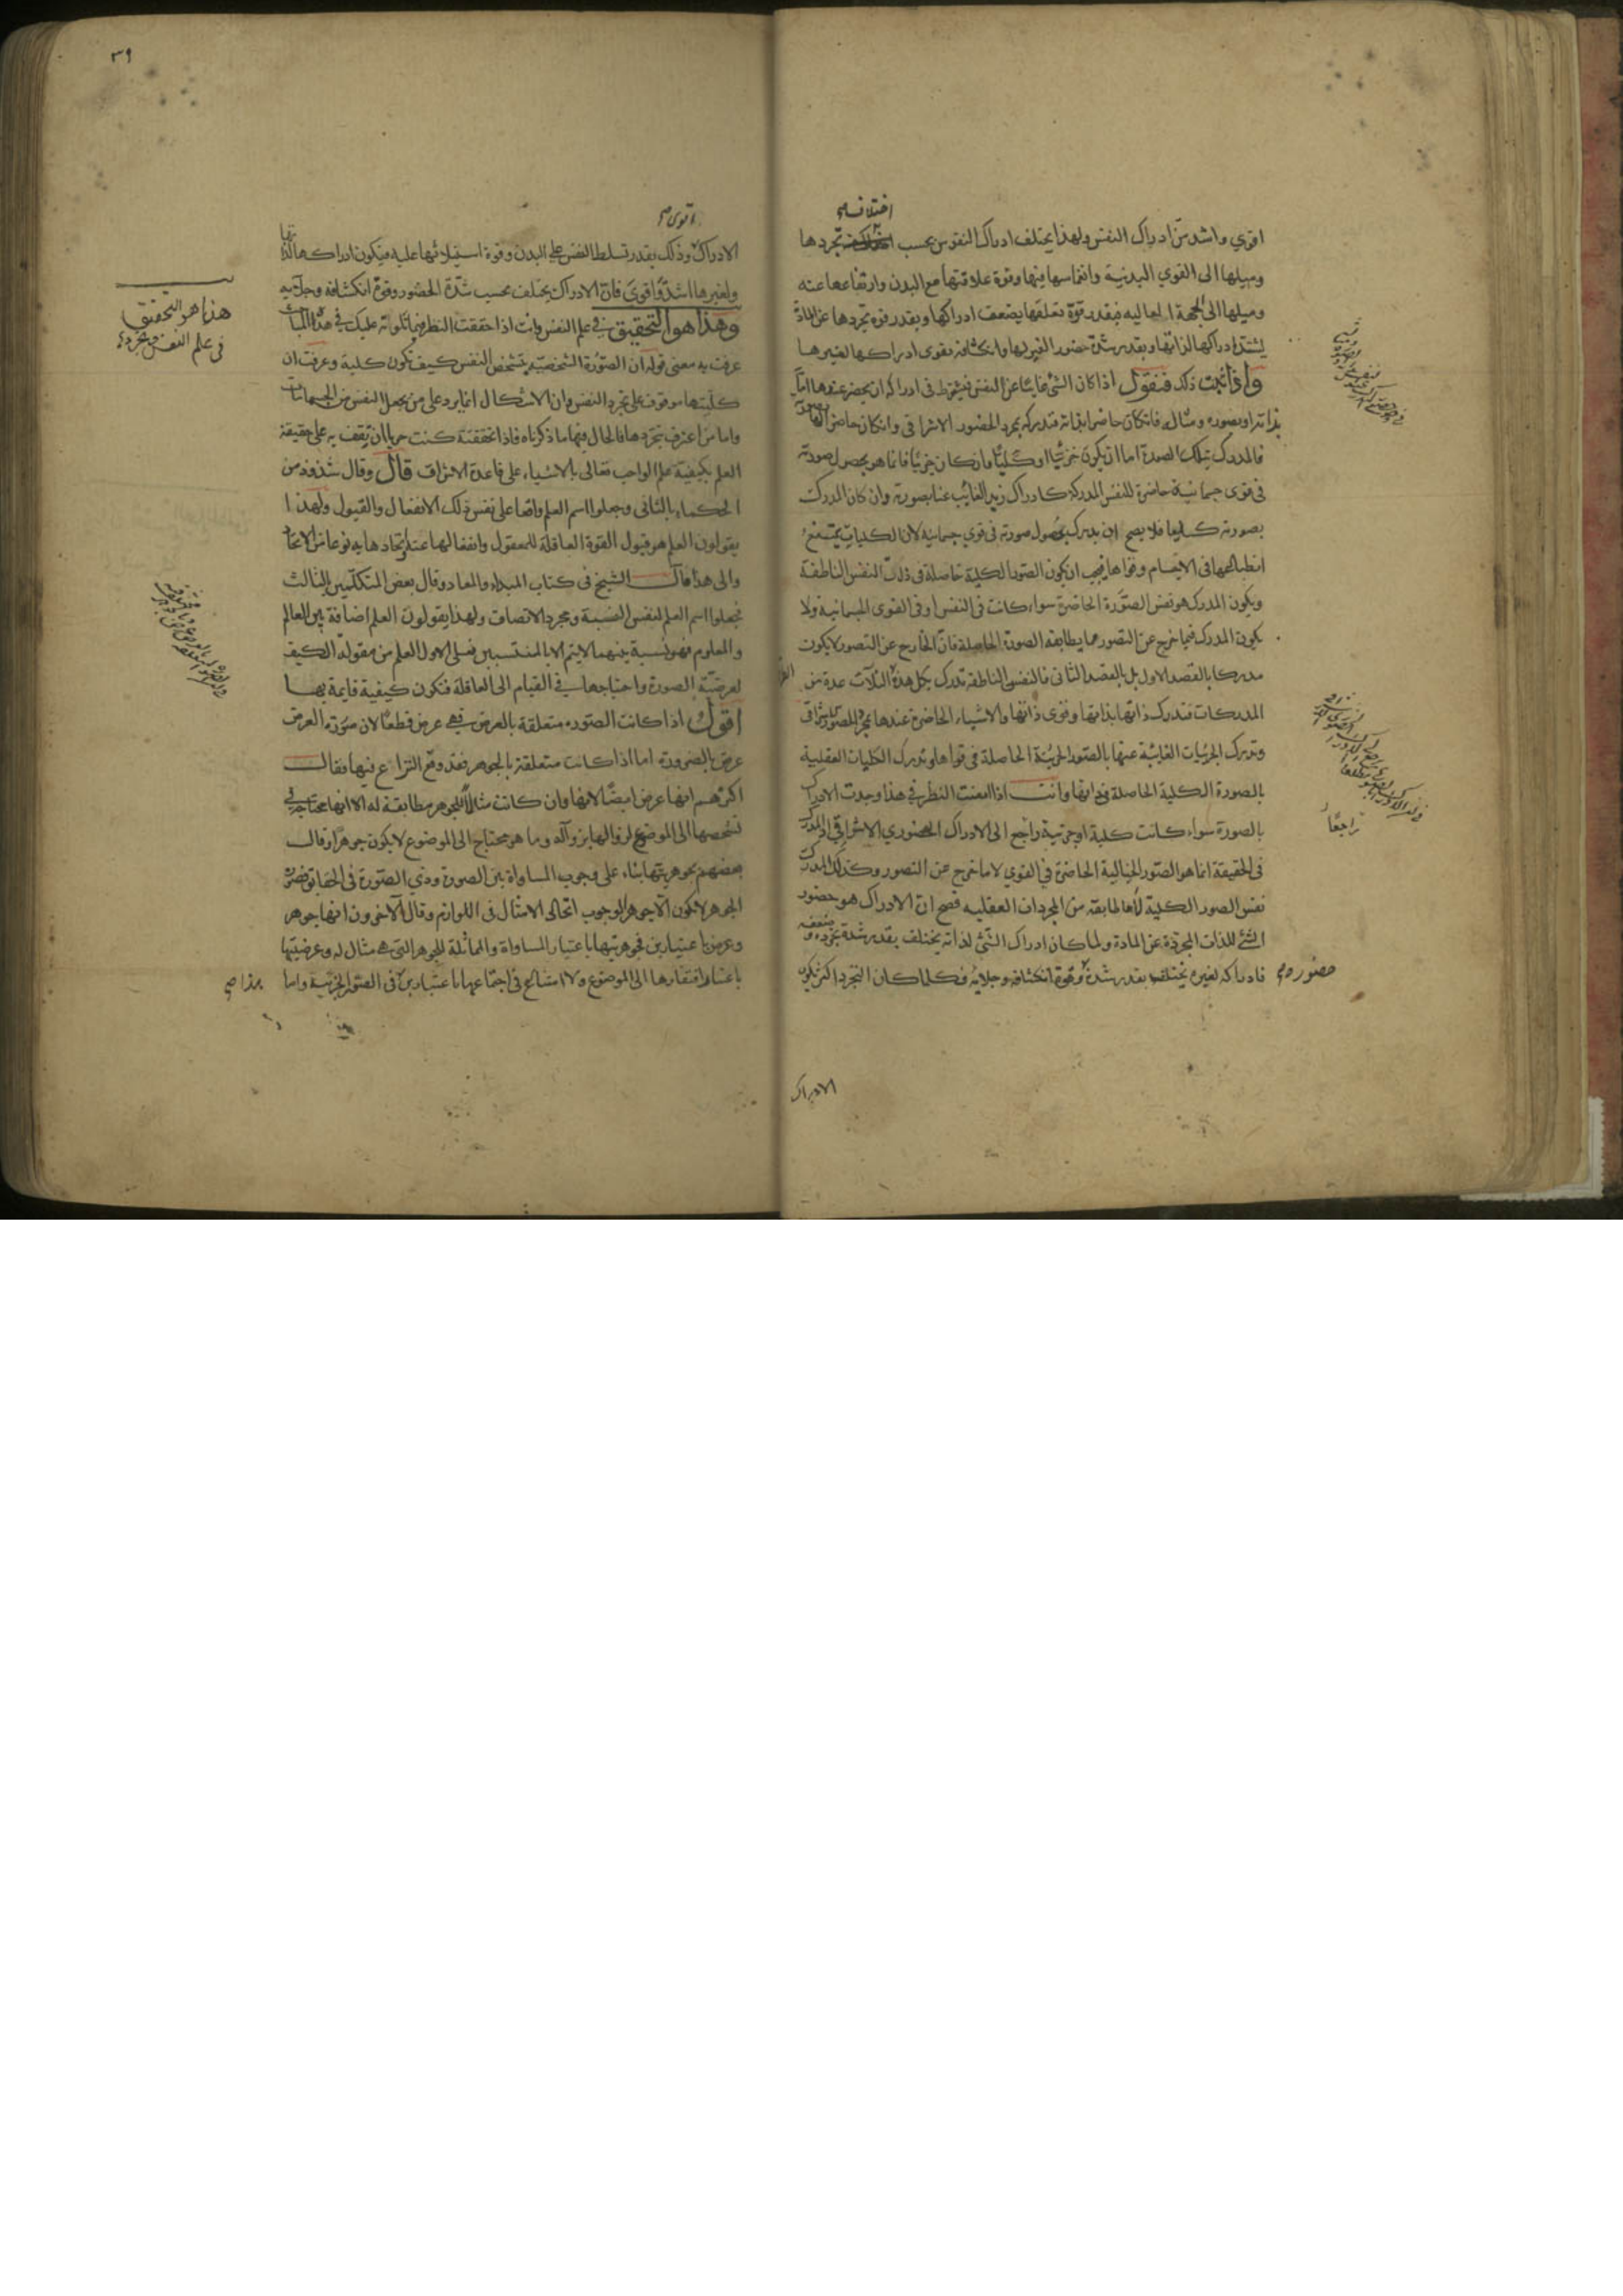 اختلاف صح
اقوي واشد من ادراك النفس ولهذا يختلف ادراك النفوس بحسب تجردها
وميلها الى القوي البدنية وانغماسها فيها وقوة علاقتها مع البدن وارتفاعها عنه
وميلها الى الجهة العاليه فبقدر قوة تعلقها يضعف ادراكها وبقدر قوه تجردها عن المادة
يشتد ادراكها لذاتها وبقدر شدة حضور الغير لها وانكشافه يقوى ادراكها لغيرها
واذا ثبت ذلك فنقول اذا كان الشئ غايبا عن النفس فيشترط فى ادراكه ان يحضر عندها اما
بذاته او بصوره ومثاله فان كان حاضرا بذاته فتدركه بمجرد الحضور الاشراقى وان كان حاضرا
فالمدرك بتلك الصورة اما ان يكون جزئيا او كليا فان كان جزئيا فانما هو بحصول صورته
فى قوى جسمانية حاضرة للنفس المدركة كادراك زيد الغايب عنا بصورته وان كان المدرك
بصورته كليا فلا يصح ان يدرك بحصول صورته فى قوي جسمانية لان الكليات يمتنع
انطباعها فى الاجسام وقواها فيجب ان يكون الصور الكلية حاصلة فى ذات النفس الناطقة
ويكون المدرك هو نفس الصورة الحاضرة سواء كانت فى النفس او فى القوى الجسمانية ولا
يكون المدرك فيما خرج عن التصور مما يطابقه الصورة الحاصلة فان الخارج عن التصور لا يكون
مدركا بالقصد الاول بل بالقصد الثانى فالنفس الناطقة تدرك بكل هذه الثلاث عدة من
المدركات فتدرك ذاتها بذاتها وقوى ذاتها والاشياء الحاضرة عندها بمجرد الحضور الاشراقى
وتدرك الجزئيات الغائبة عنها بالصور الجزئية الحاصلة فى قواها وتدرك الكليات العقلية
بالصورة الكلية الحاصلة في ذاتها وانت اذا امعنت النظر في هذا وجدت الادراك
بالصورة سواء كانت كلية او جزئية راجع الى الادراك الحضوري الاشراقي اذ المدرك
فى الحقيقة انما هو الصور الخيالية الحاضرة في القوي لا ما خرج عن التصور وكذلك المدرك
نفس الصور الكلية لا المطابقة من المجردات العقليه فصح ان الادراك هو حضور
الشئ للذات المجردة عن المادة ولما كان ادراك الشئ لذاته يختلف بقدر شدة تجرده وضعفه
فادراكه لغيره يختلف بقدر شدة وقوة انكشافه وجلايه فكلما كان التجرد اكثر يكون
حضوره صح
راجعًا
الادراك
٣٩
اقوى صح
الادراك وذلك بقدر تسلط النفس على البدن وقوة استيلائها عليه فيكون ادراكها لذاتها
ولغيرها اشد واقوى فان الادراك يختلف بحسب شدة الحضور وقوة انكشافه وجلائيه
وهذا هو التحقيق في علم النفس وانت اذا حققت النظر فيما تلوناه عليك في هذا الباب
عرفت به معنى قوله ان الصورة الشخصية بتشخص النفس كيف تكون كلية وعرفت ان
كليتها موقوف على تجرد النفس وان الاشكال انما يرد على من يجعل النفس من الجسمانيات
واما من اعترف بتجردها فالحال فيها ما ذكرناه فاذا تحققته كنت حريا ان تقف به على حقيقة
العلم بكيفية علم الواجب تعالى بالاشياء على قاعدة الاشراف قال وقال شذوذ من
الحكماء بالثانى وجعلوا اسم العلم واقعا على نفس ذلك الانفعال والقبول ولهذا
يقولون العلم هو قبول القوة العاقلة للمعقول وانفعالها عنه واتحادها به نوعا من الاتحاد
والى هذا مال الشيخ فى كتاب المبداء والمعاد وقال بعض المتكلمين بالثالث
فجعلوا اسم العلم لنفس النسبة ومجرد الاتصاف ولهذا يقولون العلم اضافة بين العالم
والمعلوم فهو نسبة بينهما لا يتم الا بالمنتسبين فعلى الاول العلم من مقوله الكيف
لعرضية الصورة واحتياجها في القيام الى العاقلة فتكون كيفية قايمة بها
اقول اذا كانت الصوره متعلقة بالعرض فهي عرض قطعا لان صورة العرض
عرض بالضرورة اما اذا كانت متعلقة بالجوهر فقد وقع النزاع فيها فقال
اكثرهم انها عرض ايضا لانها وان كانت مثالا للجوهر مطابقة له الا انها محتاجة في
تشخصها الى الموضوع لزوالها بزواله وما هو محتاج الى الموضوع لا يكون جوهرا وقال
بعضهم بجوهريتها بناء على وجوب المساواة بين الصورة وذي الصورة فى الحقايق فصورة
الجوهر لا يكون الا جوهرا لوجوب اتحاد الامثال فى اللوازم وقال الآخرون انها جوهر
وعرض باعتبارين فجوهريتها باعتبار المساواة والمماثلة للجوهر التى هي مثال له وعرضيتها
باعتبار افتقارها الى الموضوع ولا امتناع فى اجتماعهما باعتبارين فى الصور الجزئية واما
هذا هو التحقيق
فى علم النفس وتجرده